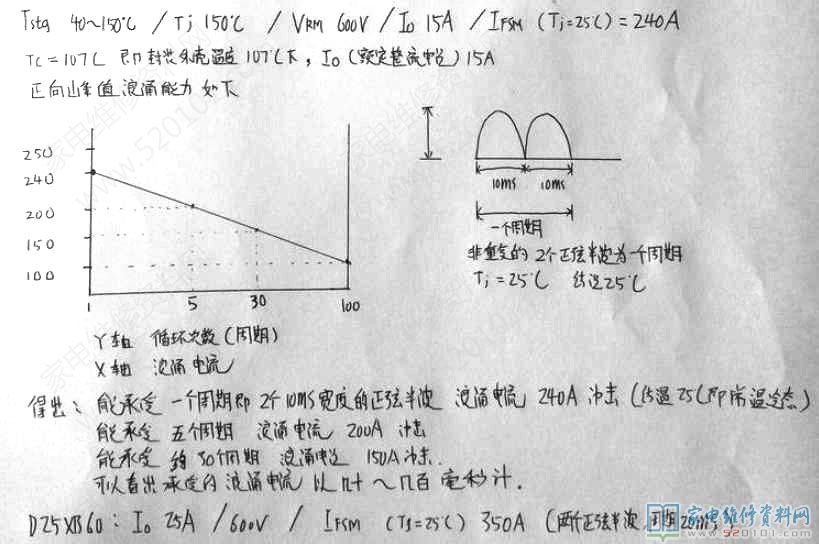 Tstg 40~150℃ / Tj 150℃ / VRM 600V / Io 15A / IFSM (Tj=25℃) = 240A
Tc=107℃ 即封装外壳温度107℃下, Io (额定整流电流) 15A
正向峰值浪涌能力如下
250
240
200
150
100
1 5 30 100
10ms 10ms
一个周期
非重复的2个正弦半波为一个周期
Tj=25℃ 结温25℃
Y轴 循环次数(周期)
X轴 浪涌电流
得出: 能承受一个周期即2个10MS宽度的正弦半波 浪涌电流 240A 冲击 (结温25℃即常温状态)
能承受 五个周期 浪涌电流 200A 冲击
能承受 约30个周期 浪涌电流 150A冲击.
可以看出承受的浪涌电流以几十~几百毫秒计.
D25XB60: Io 25A /600V / IFSM (Tj=25℃) 350A (两个正弦半波,即20ms)
家电维修资料网
www.520101.com